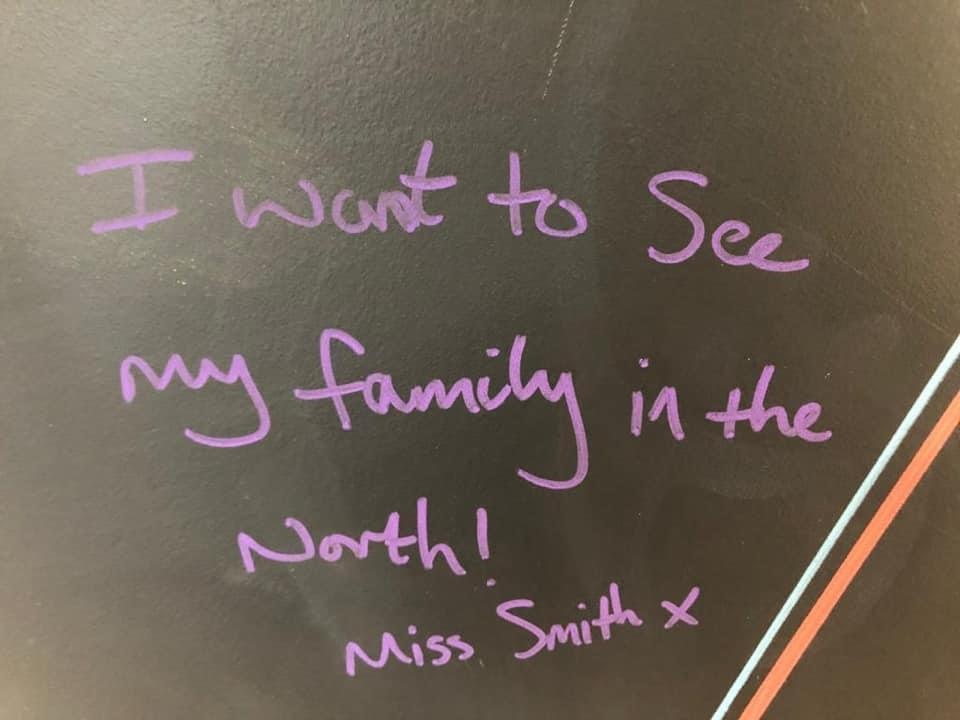 I want to See
my family in the
North!
Miss Smith x